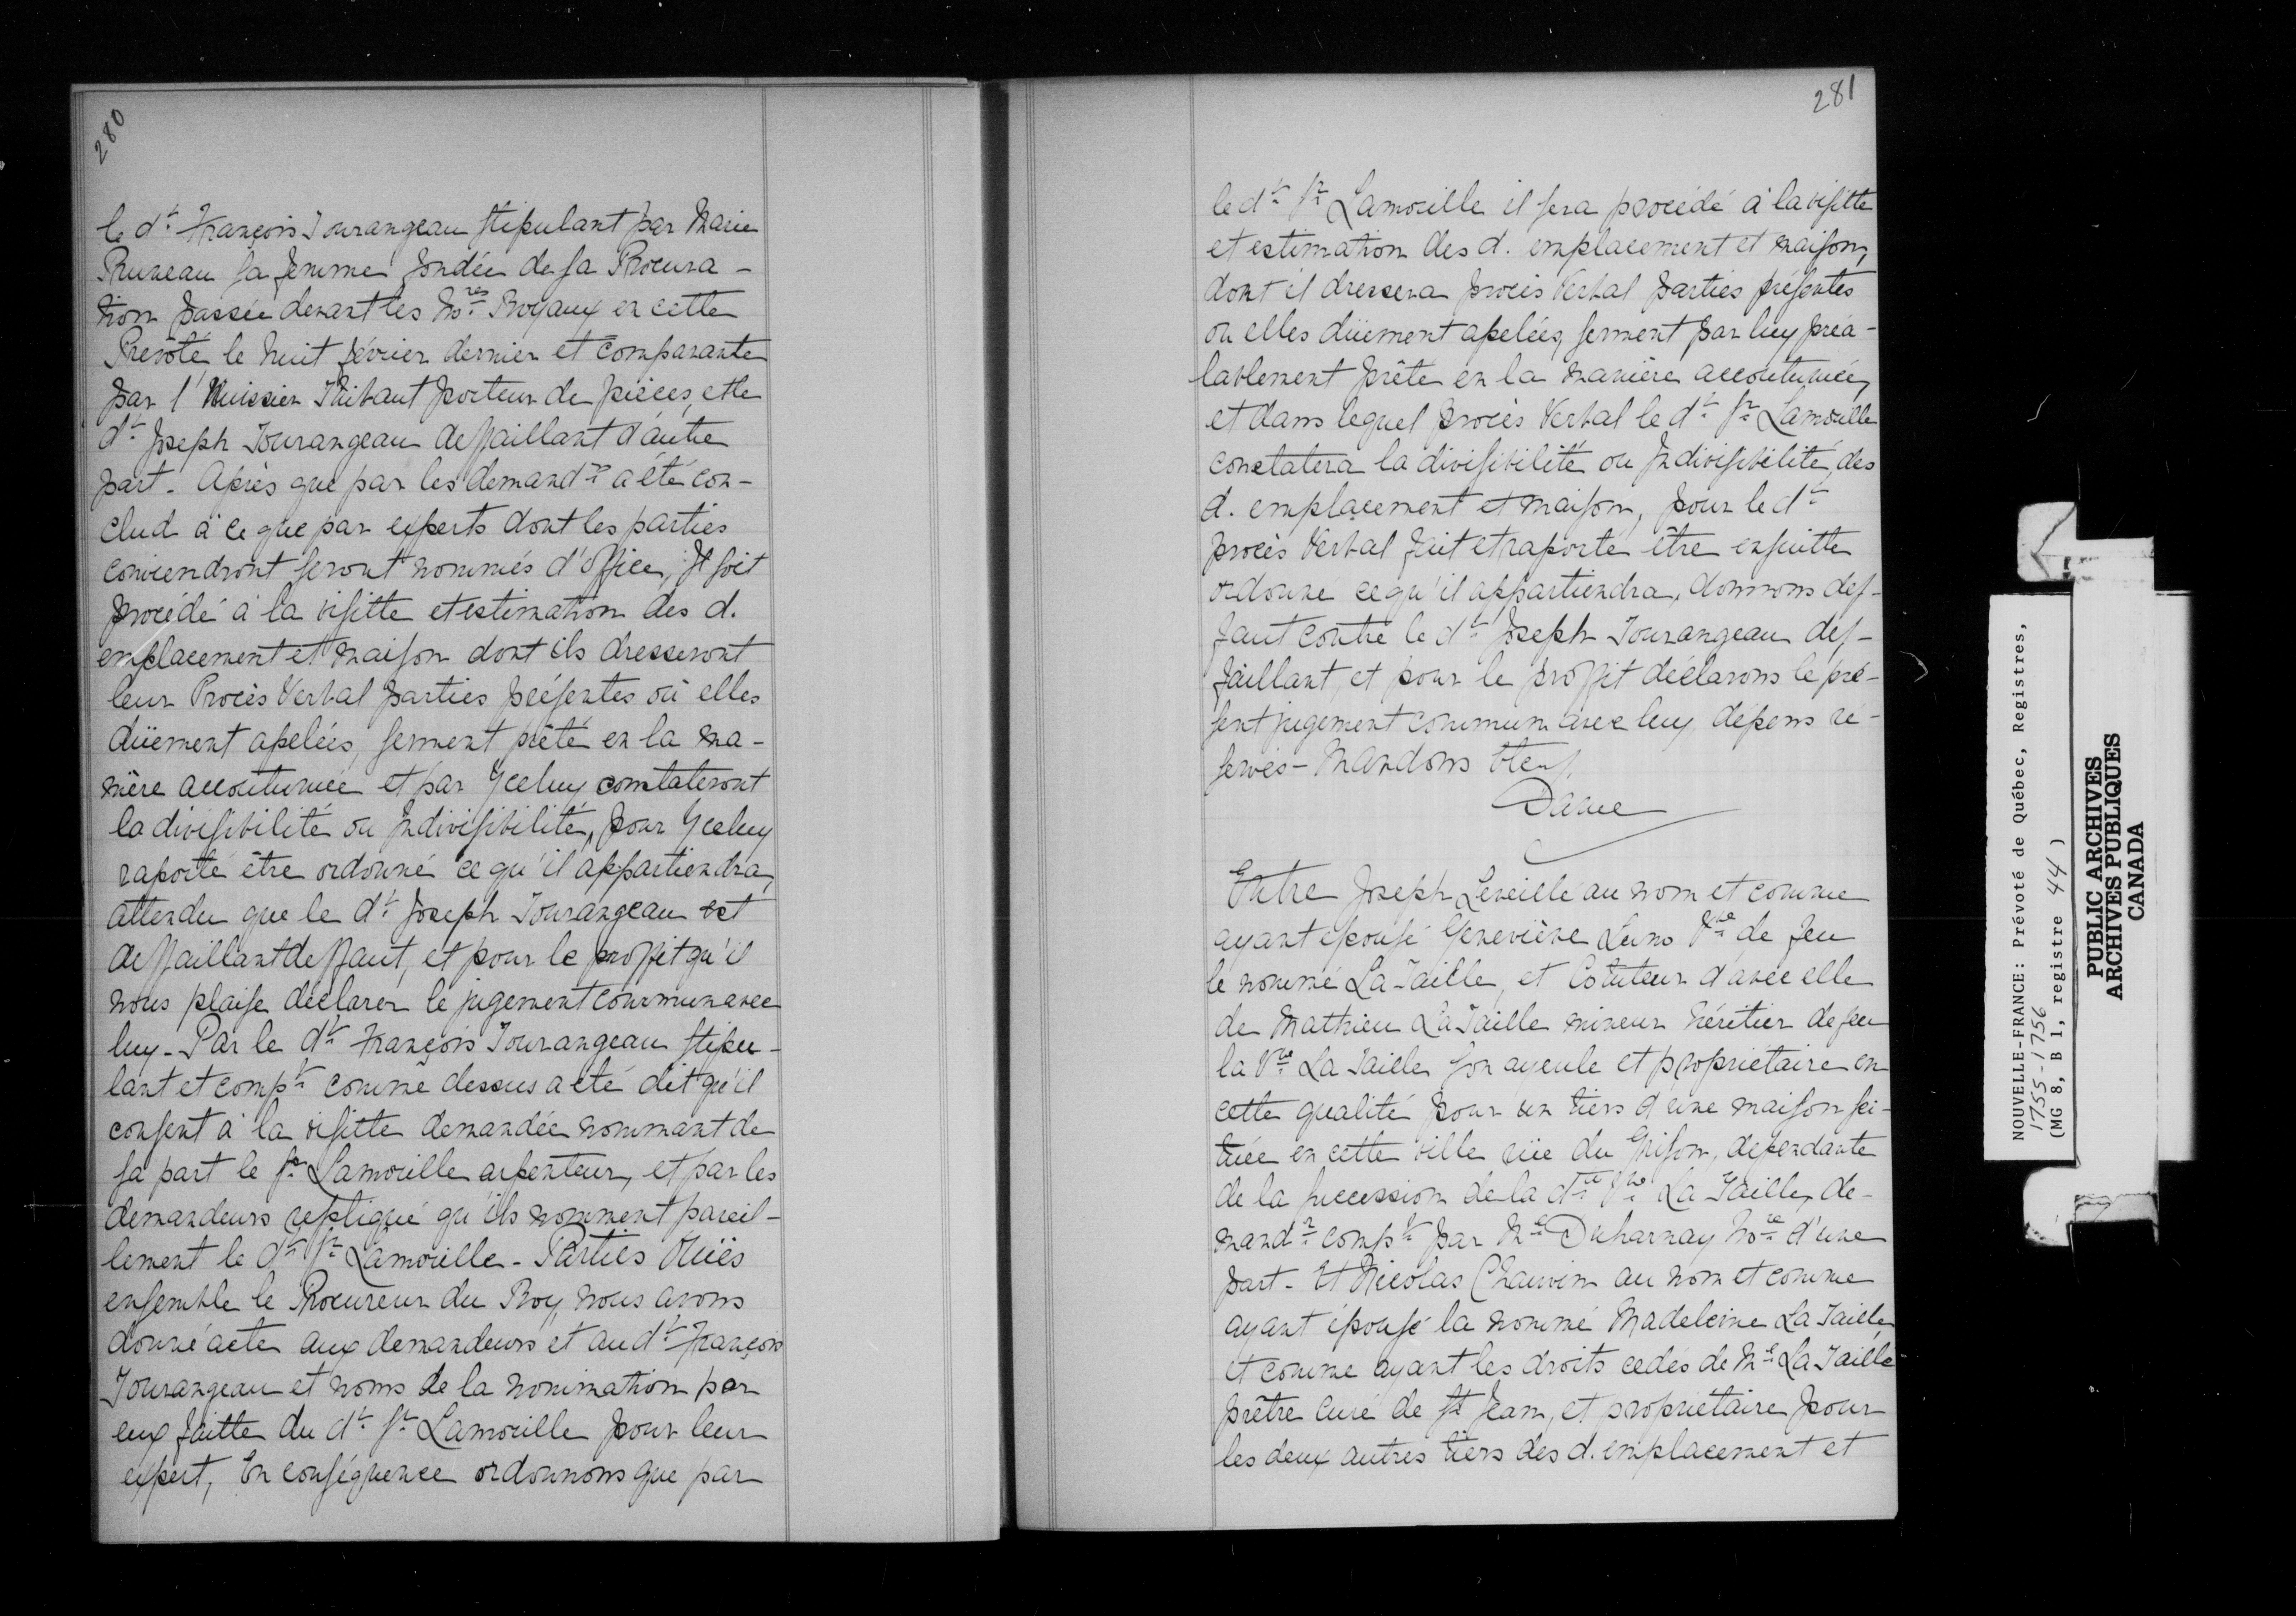 280
le dt. François Tourangeau stipulant par Marie
Pruneau sa femme fondée de sa Procura-
tion passée devant les Nores Royaux en cette
Prevôté, le huit février dernier et comparante
par l'Huissier Thibaut porteur de pièces, et le
dt. Joseph Tourangeau deffaillant d'autre
part. Après que par les demandrs a été con-
clud à ce que par experts dont les parties
conviendront seront nommés d'office, Il soit
procédé à la visitte et estimation des d.
emplacement et maison dont ils dresseront
leur Procès Verbal parties présentes où elles
düement apelées, serment prêté en la ma-
nière accoutumée et par Yceluy constateront
la divisibilité ou Indivisibilité, pour Yceluy
raporté être ordonné ce qu'il appartiendra,
attendu que le dt. Joseph Tourangeau est
deffaillant deffaut, et pour le proffit qu'il
nous plaise déclarer le jugement commun avec
luy. Par le dt. François Tourangeau stipu-
lant et compt. comme dessus a été dit qu'il
consent à la visitte demandée nommant de
sa part le Sr. Lamorille arpenteur, et par les
demandeurs repliqué qu'ils nomment pareil-
lement le dt. Sr. Lamorille - Parties Ouïes
ensemble le Procureur du Roy, nous avons
donné acte aux demandeurs et au dt. François
Tourangeau et noms de la nomination par
eux faitte du dt. Sr. Lamorille pour leur
expert, En conséquence ordonnons que par
281
le dt. Sr. Lamorille il sera procédé à la visitte
et estimation des d. emplacement et maison,
dont il dressera procès Verbal parties présentes
ou elles düement apelées, serment par luy préa-
lablement prêté en la manière accoutumée,
et dans lequel procès Verbal le dt. Sr. Lamorille
constatera la divisibilité ou Indivisibilité, des
d. emplacement et maison, pour le dt.
procès Verbal fait et raporté être ensuitte
ordonné ce qu'il appartiendra, donnons def-
faut contre le dt. Joseph Tourangeau def-
faillant, et pour le proffit déclarons le pré-
sent jugement commun avec luy, dépens ré-
servés - Mandons
Daine
Entre Joseph Leveillé au nom et comme
ayant épousé Geneviève Vve de feu
le nommé La Taille, et Cotuteur d'avec elle
de Mathieu La Taille mineur héritier de feu
la Vve La Taille son ayeule et propriétaire en
cette qualité pour un tiers d'une maison sei-
tuée en cette ville rüe du Grison, dependante
de la succession de la dte. Vve La Taille, de-
mandr. compt. par Me Duharnay Nore d'une
part. Et Nicolas Chauvin au nom et comme
ayant épousé la nommé Madeleine La Taille,
et comme ayant les droits cedés de Me La Taille
prêtre curé de St Jean, et propriétaire pour
les deux autres tiers des d. emplacement et
NOUVELLE-FRANCE: Prévoté de Québec, Registres,
1755-1756
(MG 8, B 1, registre 44)
PUBLIC ARCHIVES
ARCHIVES PUBLIQUES
CANADA